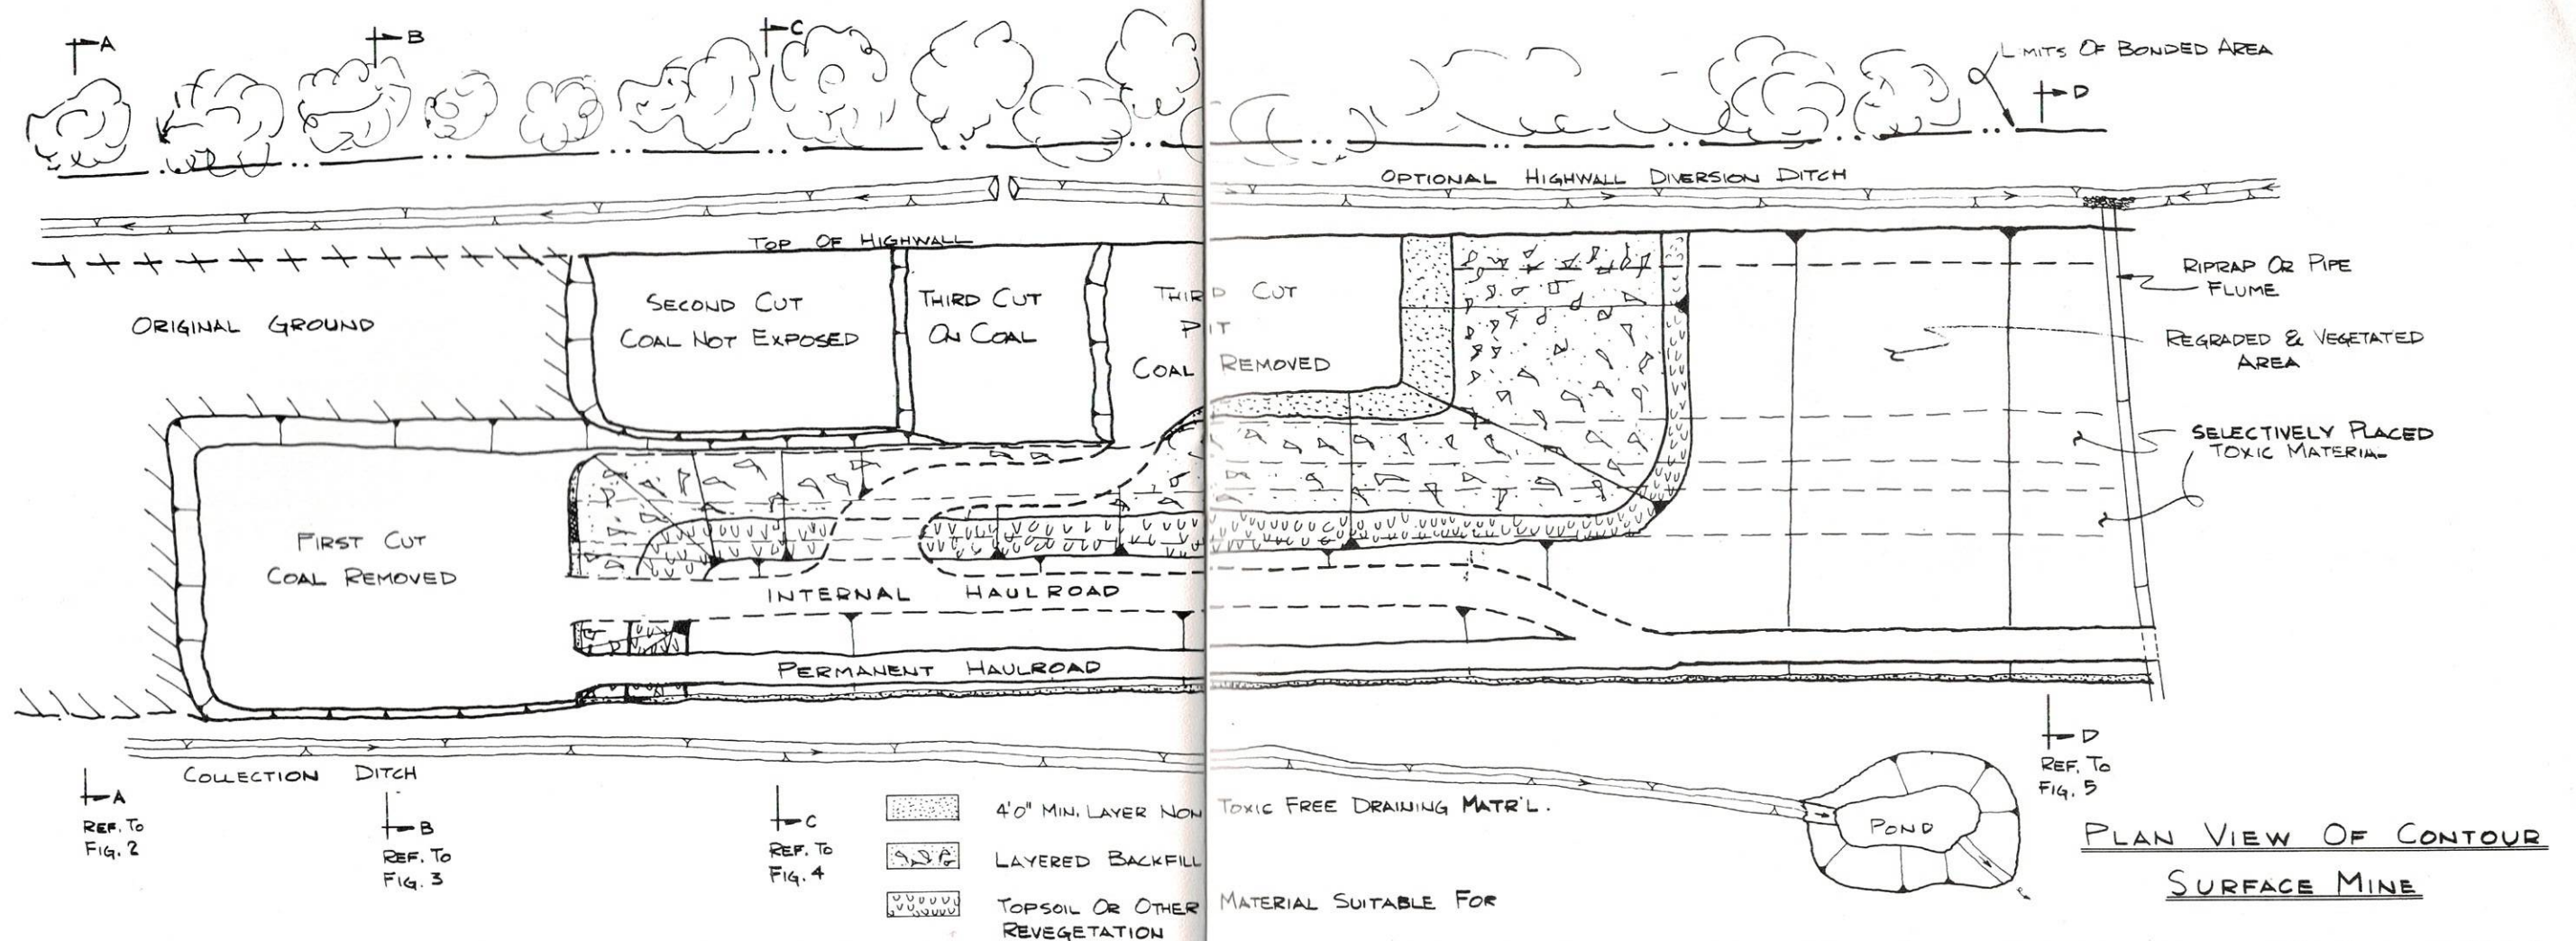 A
B
C
LIMITS OF BONDED AREA
D
OPTIONAL HIGHWALL DIVERSION DITCH
TOP OF HIGHWALL
ORIGINAL GROUND
SECOND CUT
COAL NOT EXPOSED
THIRD CUT
ON COAL
THIRD CUT
PIT
COAL REMOVED
RIPRAP OR PIPE
FLUME
REGRADED & VEGETATED
AREA
SELECTIVELY PLACED
TOXIC MATERIAL
FIRST CUT
COAL REMOVED
INTERNAL HAULROAD
PERMANENT HAULROAD
COLLECTION DITCH
A
REF. TO
FIG. 2
B
REF. TO
FIG. 3
C
REF. TO
FIG. 4
D
REF. TO
FIG. 5
4'0" MIN. LAYER NON TOXIC FREE DRAINING MATR'L.
LAYERED BACKFILL
TOPSOIL OR OTHER MATERIAL SUITABLE FOR
REVEGETATION
POND
PLAN VIEW OF CONTOUR
SURFACE MINE